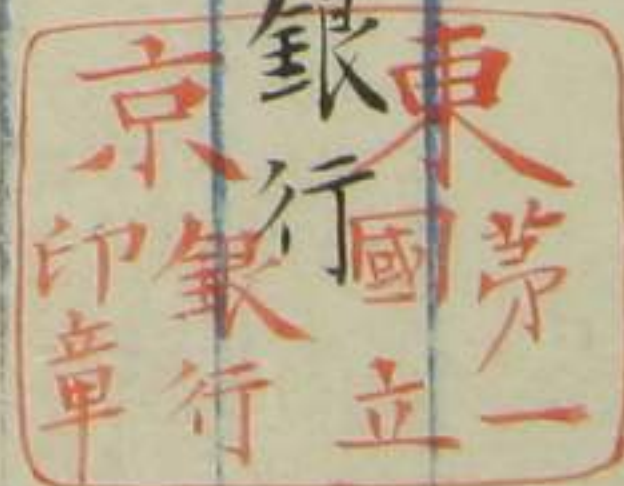 銀行
東京
第一
國立
銀行
印章